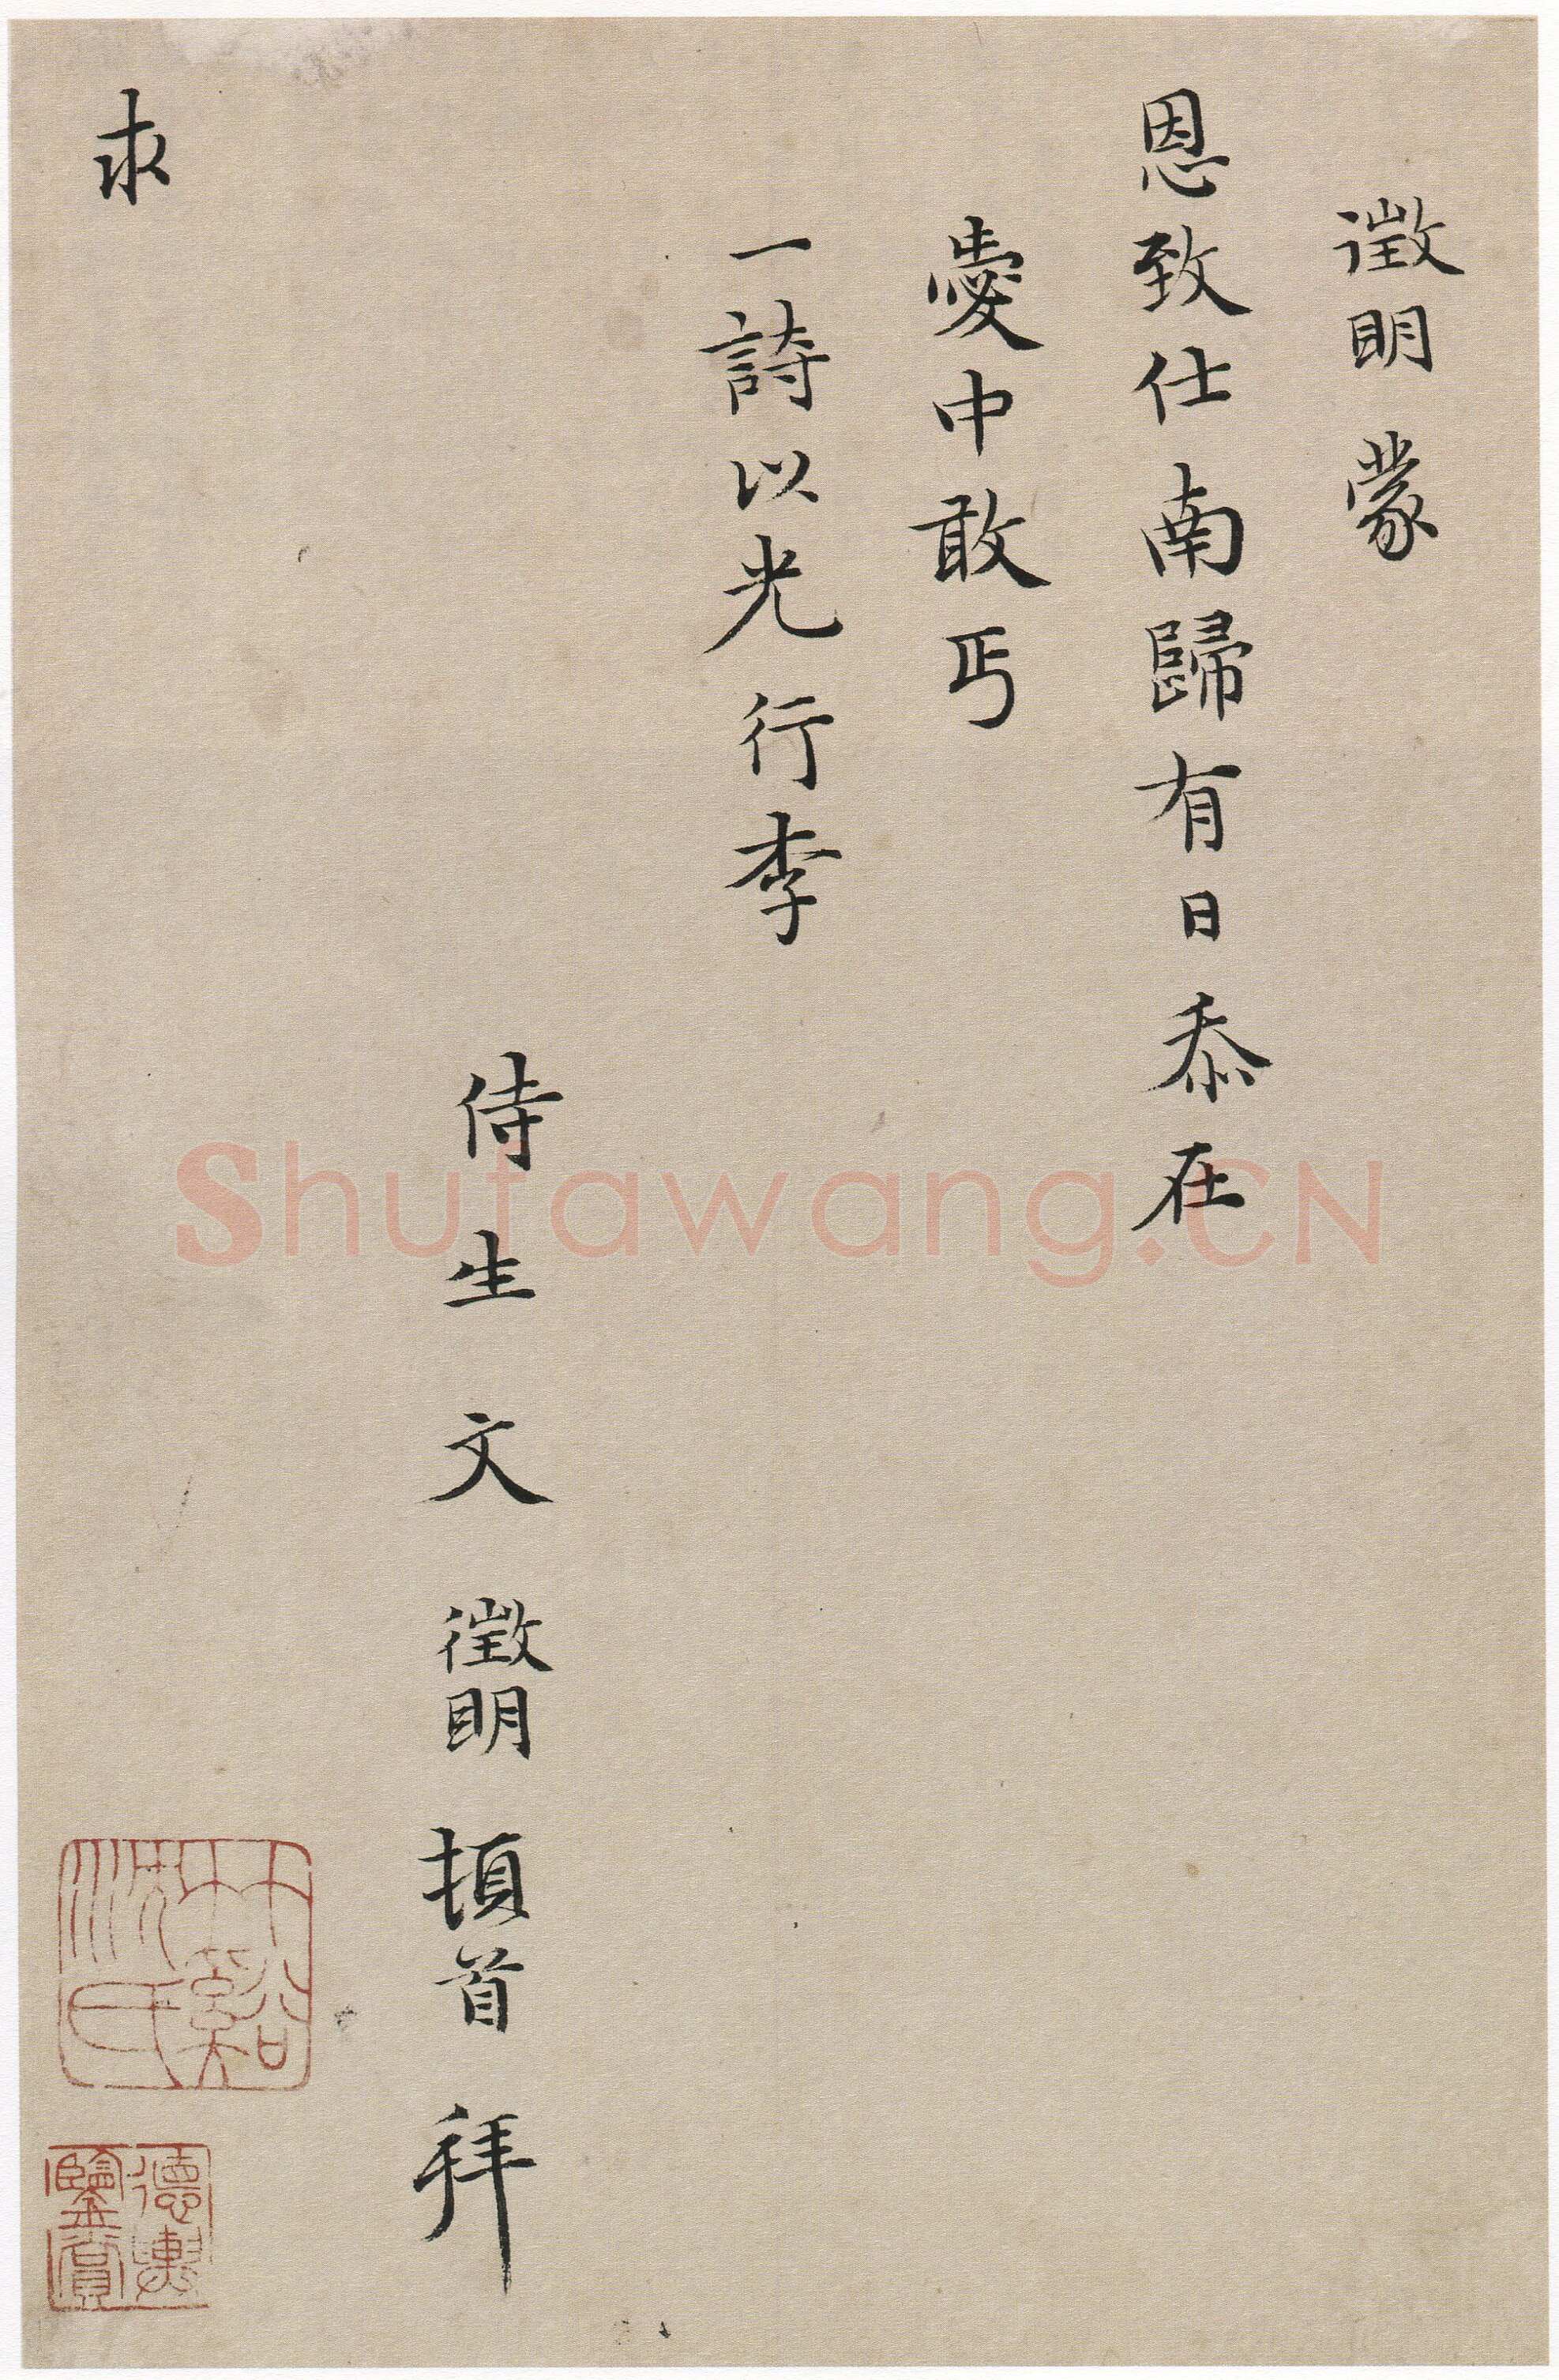 徵明蒙
恩致仕南歸有日忝在
愛中敢丐
一詩以光行李
侍生文徵明頓首拜
求
竹谿沈氏
德輿鑒賞
Shufawang.CN